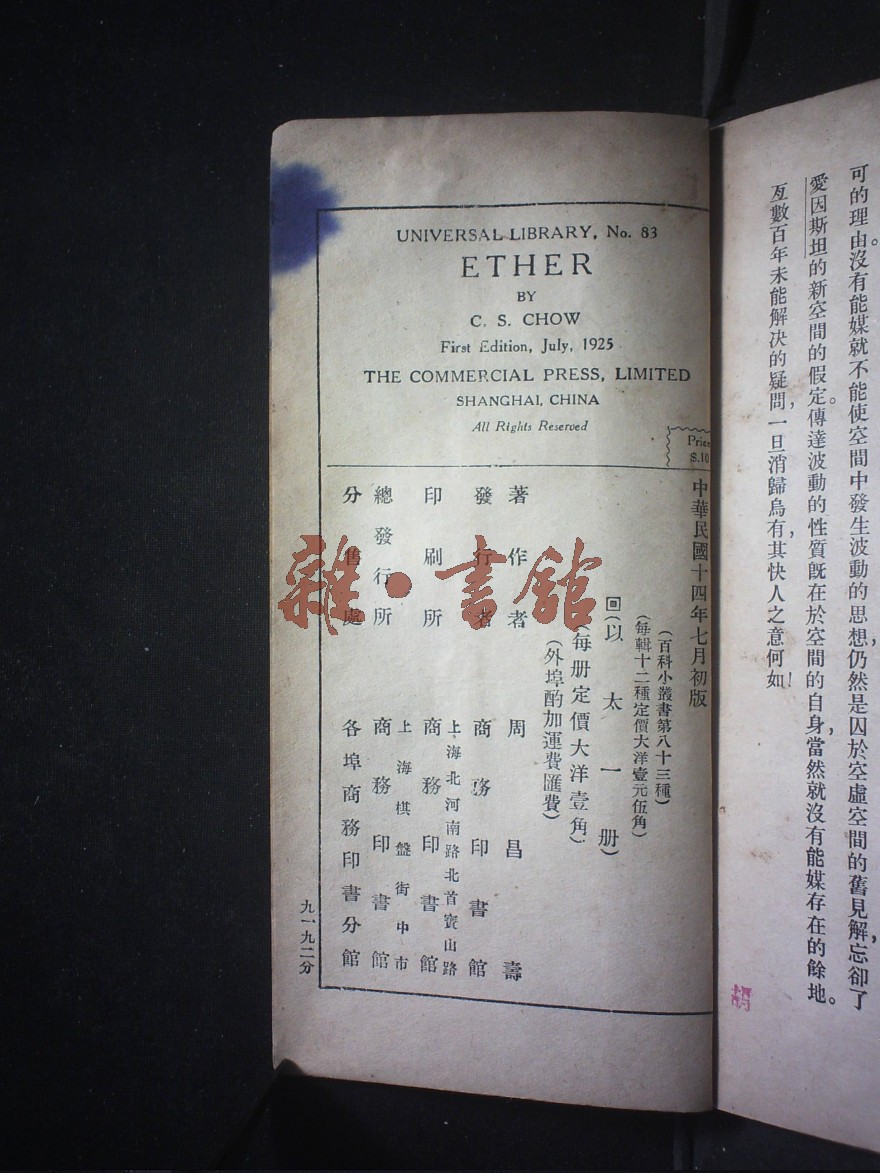 可的理由。沒有能媒就不能使空間中發生波動的思想，仍然是囚於空虛空間的舊見解，忘卻了
愛因斯坦的新空間的假定。傳達波動的性質既在於空間的自身，當然就沒有能媒存在的餘地。
亙數百年未能解決的疑問，一旦消歸烏有，其快人之意何如！
UNIVERSAL LIBRARY, No. 83
ETHER
BY
C. S. CHOW
First Edition, July, 1925
THE COMMERCIAL PRESS, LIMITED
SHANGHAI, CHINA
All Rights Reserved
中華民國十四年七月初版
(百科小叢書第八十三種)
(每輯十二種定價大洋壹元伍角)
回(以太一册)
(每册定價大洋壹角)
(外埠酌加運費匯費)
著作者 周昌壽
發行者 商務印書館
上海北河南路北首寶山路
印刷所 商務印書館
上海棋盤街中市
總發行所 商務印書館
分售處 各埠商務印書分館
九一九二分
雜·書館